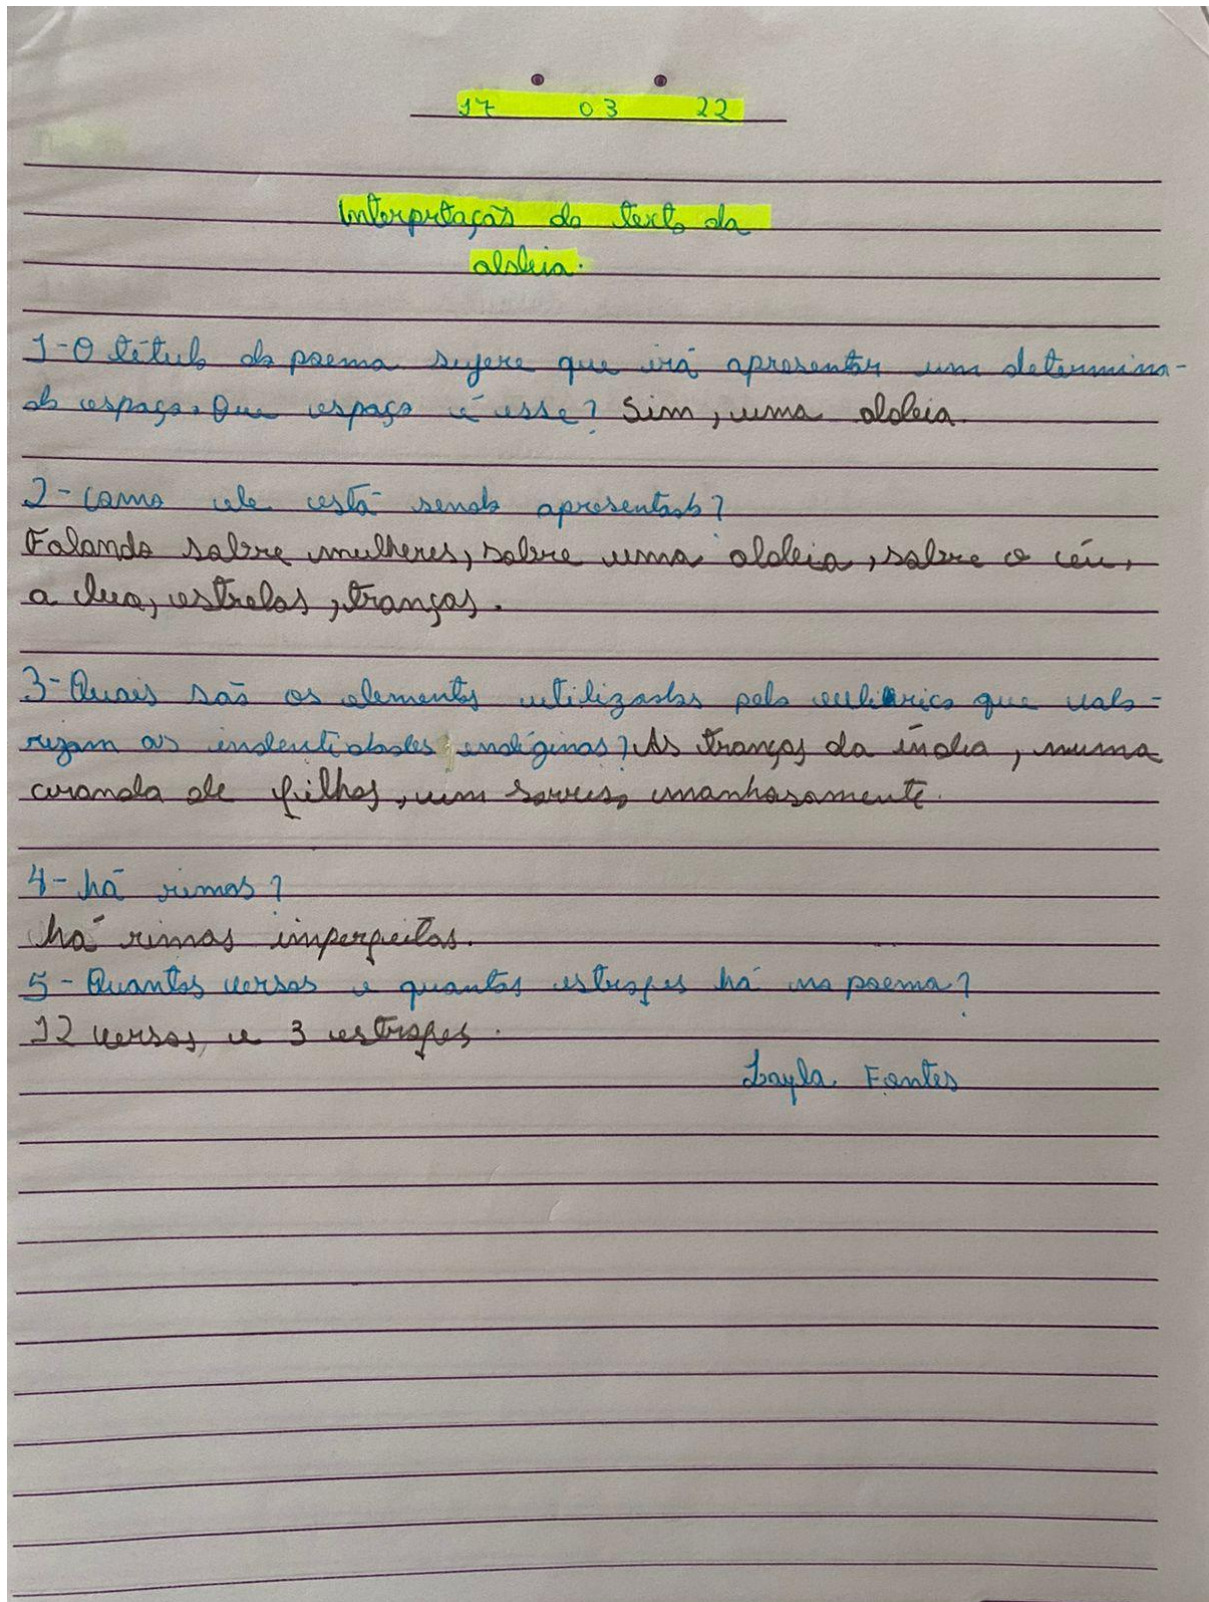 17 03 22
Interpretação do texto da
aldeia.
1-O título do poema sujere que irá apresentar um determina-
do espaço. Que espaço é esse? Sim, uma aldeia.
2-Como ele está sendo apresentado?
Falando sobre mulheres, sobre uma aldeia, sobre o céu,
a lua, estrelas, tranças.
3-Quais são os elementos utilizados pelo eulírico que valo-
rizam as indentidades endíginas? As tranças da índia, numa
ciranda de filhos, um sorriso, manhosamente.
4-há rimas?
há rimas imperfeitas.
5-Quantos versos e quantas estrofes há no poema?
12 versos, e 3 estrofes.
Layla Fontes